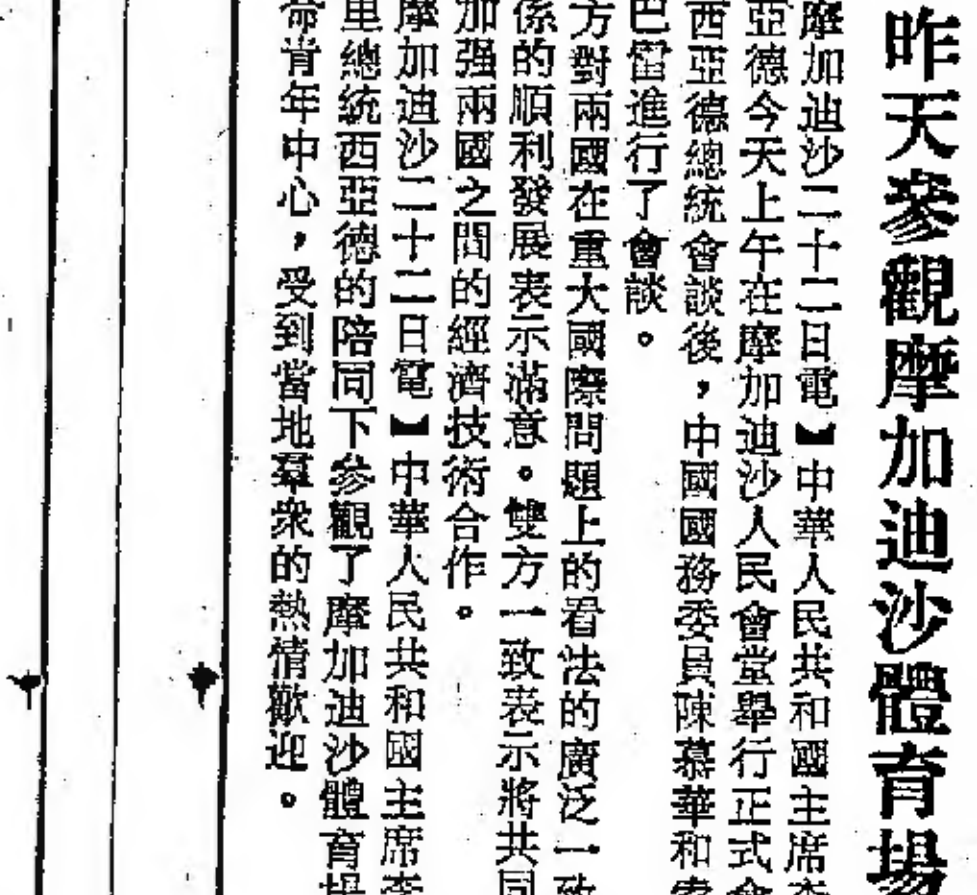 昨天參觀摩加迪沙體育場
摩加迪沙二十二日電】中華人民共和國主席李
亞德今天上午在摩加迪沙人民會堂舉行正式會
西亞德總統會談後，中國國務委員陳慕華和索
巴雷進行了會談。
方對兩國在重大國際問題上的看法的廣泛一致
係的順利發展表示滿意。雙方一致表示將共同
加强兩國之間的經濟技術合作。
摩加迪沙二十二日電】中華人民共和國主席李
里總統西亞德的陪同下參觀了摩加迪沙體育場
命青年中心，受到當地羣衆的熱情歡迎。